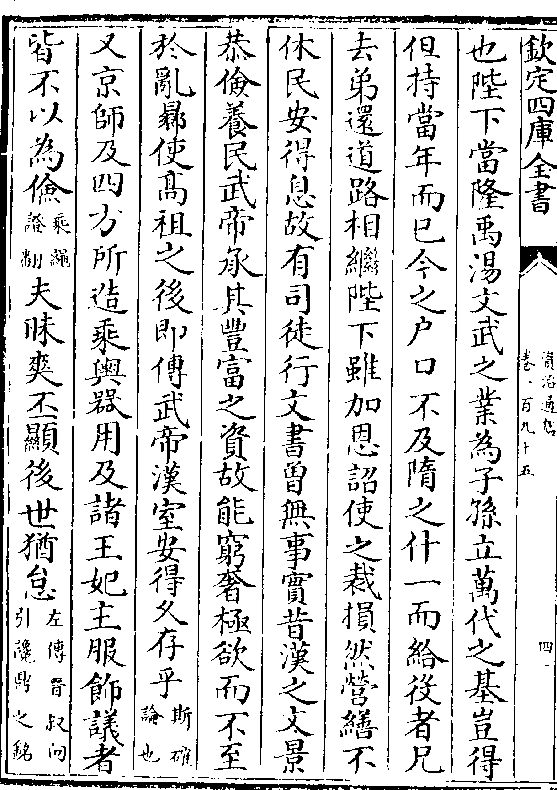 欽定四庫全書
資治通鑑
卷一百九十五
四
也陛下當隆禹湯文武之業為子孫立萬代之基豈得
但持當年而已今之户口不及隋之什一而給役者兄
去弟還道路相繼陛下雖加恩詔使之裁損然營繕不
休民安得息故有司徒行文書曽無事實昔漢之文景
恭儉養民武帝承其豐富之資故能窮奢極欲而不至
於亂曏使髙祖之後即傳武帝漢室安得久存乎斯確
論也
又京師及四方所造乘輿器用及諸王妃主服飾議者
皆不以為儉乘繩
證翻
夫昧爽丕顯後世猶怠左傳晉叔向
引讒鼎之銘